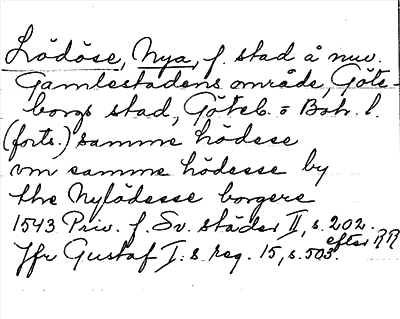 Lödöse, Nya, f. stad å nuv.
Gamlestadens område, Göte-
borgs stad, Göteb. o Boh. l.
(forts.) samme Lödese
vm samme lödesse by
the Nylödesse borgere
1543 Priv. f. Sv. städer II, s. 202.
efter RR
Jfr Gustaf I:s reg. 15, s. 503.